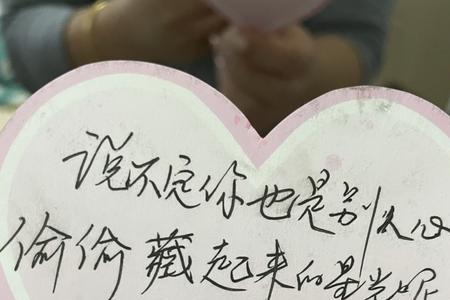 说不定你也是别人心
偷偷藏起来的星光呢